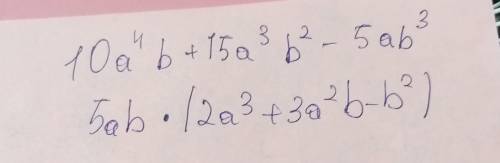 10a⁴b + 15a³b² - 5ab³
5ab · (2a³ + 3a²b - b²)